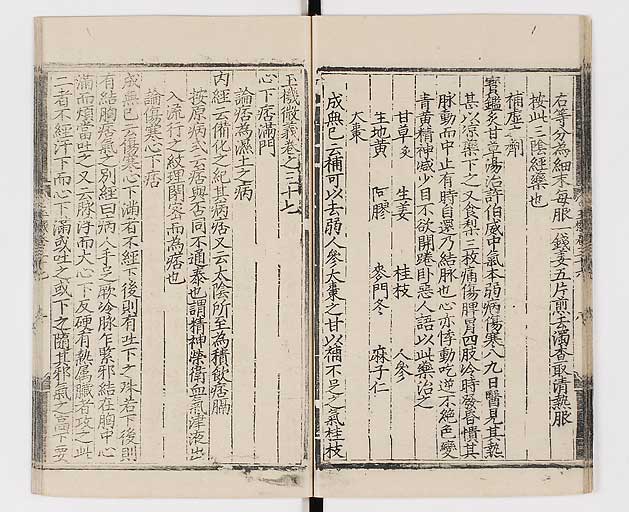 右等分為細末每服一錢姜五片煎去濁查取清熱服
按此三陰經藥也
補虛之劑
寶鑑炙甘草湯治許伯威中氣本弱病傷寒八九日醫見其熱
甚以凉藥下之又食梨三枚痛傷脾胃四肢冷時發昏憒其
脉動而中止有時自還乃結脉也心亦悸動吃逆不絶色變
青黄精神减少目不欲開踡卧惡人語以此藥治之
甘草炙 生姜 桂枝 人參
生地黄 阿膠 麥門冬 麻子仁
大棗
成無已云補可以去弱人參大棗之甘以補不足之氣桂枝
玉機微義卷之三十七
心下痞滿門
論痞為濕土之病
内經云備化之紀其病痞又云太陰所至為積飲痞膈
按原病式云痞與否同不通泰也謂精神榮衛血氣津液出
入流行之紋理閉密而為痞也
論傷寒心下痞
成無已云傷寒心下滿有不經下後則有吐下之殊若下後則
有結胸痞氣之別經曰病人手足厥冷脉乍緊邪結在胸中心
滿而煩當吐之又云脉浮而大心下反硬有熱屬臟者攻之此
二者不經汗下而心下滿或吐之或下之隨其邪氣之高下